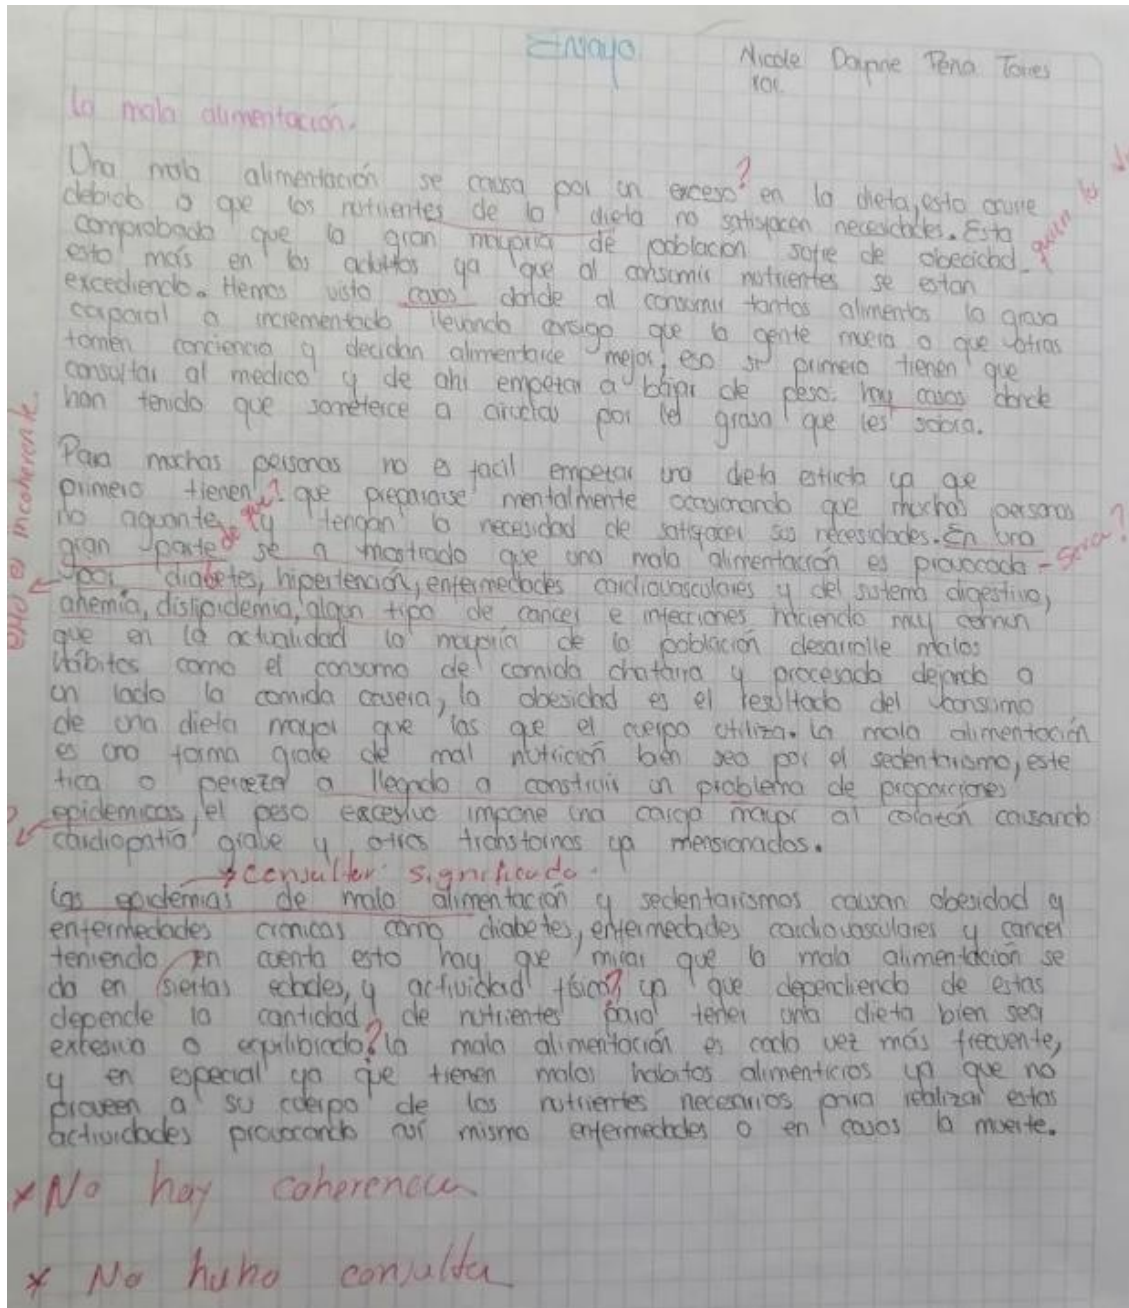 Ensayo
Nicole Dayne Peña Torres
101
La mala alimentación.
Una mala alimentación se causa por un exceso ? en la dieta, esto ocurre
debido a que los nutrientes de la dieta no satisfacen necesidades. Esta
comprobado que la gran mayoria de poblacion sofre de obecidad ? quien lo
esto más en los adultos ya que al consumir nutrientes se estan
excediendo. Hemos visto casos donde al consumir tantos alimentos la grasa
corporal a incrementado llevando consigo que la gente muera o que otras
tomen conciencia y decidan alimentarce mejor, eso si primero tienen que
consultar al medico y de ahi empezar a bajar de peso. hay casos donde
han tenido que someterce a cirucias por la grasa que les sobra.
Para muchas personas no es facil empezar una dieta estricta ya que
primero tienen que prepararse mentalmente ocacionando que muchas personas
no aguante y tengan la necesidad de satisfacer sus necesidades. En una
de que?
gran parte se a mostrado que una mala alimentación es provocada - Sera?
por diabetes, hipertención, enfermedades cardiovasculares y del sistema digestivo,
anemia, dislipidemia, algun tipo de cancer e infecciones haciendo muy comun
esto es incoherente
que en la actualidad la mayoría de la población desarrolle malos
hábitos como el consumo de comida chatarra y procesada dejando a
un lado la comida casera, la obesidad es el resultado del consumo
de una dieta mayor que las que el cuerpo utiliza. La mala alimentación
es una forma grabe de mal nutrición bien sea por el sedentarismo, este
tica o pereza a llegado a construir un problema de proporciones
? epidemicas, el peso excesivo impone una carga mayor al corazón causando
cardiopatía grabe y otros transtornos ya mensionados.
consultar significado.
Las epidemias de mala alimentación y sedentarismos causan obesidad y
enfermedades cronicas como diabetes, enfermedades cardiovasculares y cancer
teniendo en cuenta esto hay que mirar que la mala alimentación se
da en siertas edades, y actividad física? ya que dependiendo de estas
depende la cantidad de nutrientes para tener una dieta bien sea
excesiva o equilibrada? la mala alimentación es cada vez más frecuente,
y en especial ya que tienen malos habitos alimenticios ya que no
proveen a su cuerpo de los nutrientes necesarios para realizar estas
actividades provocando así mismo enfermedades o en casos la muerte.
* No hay coherencia
* No hubo consulta